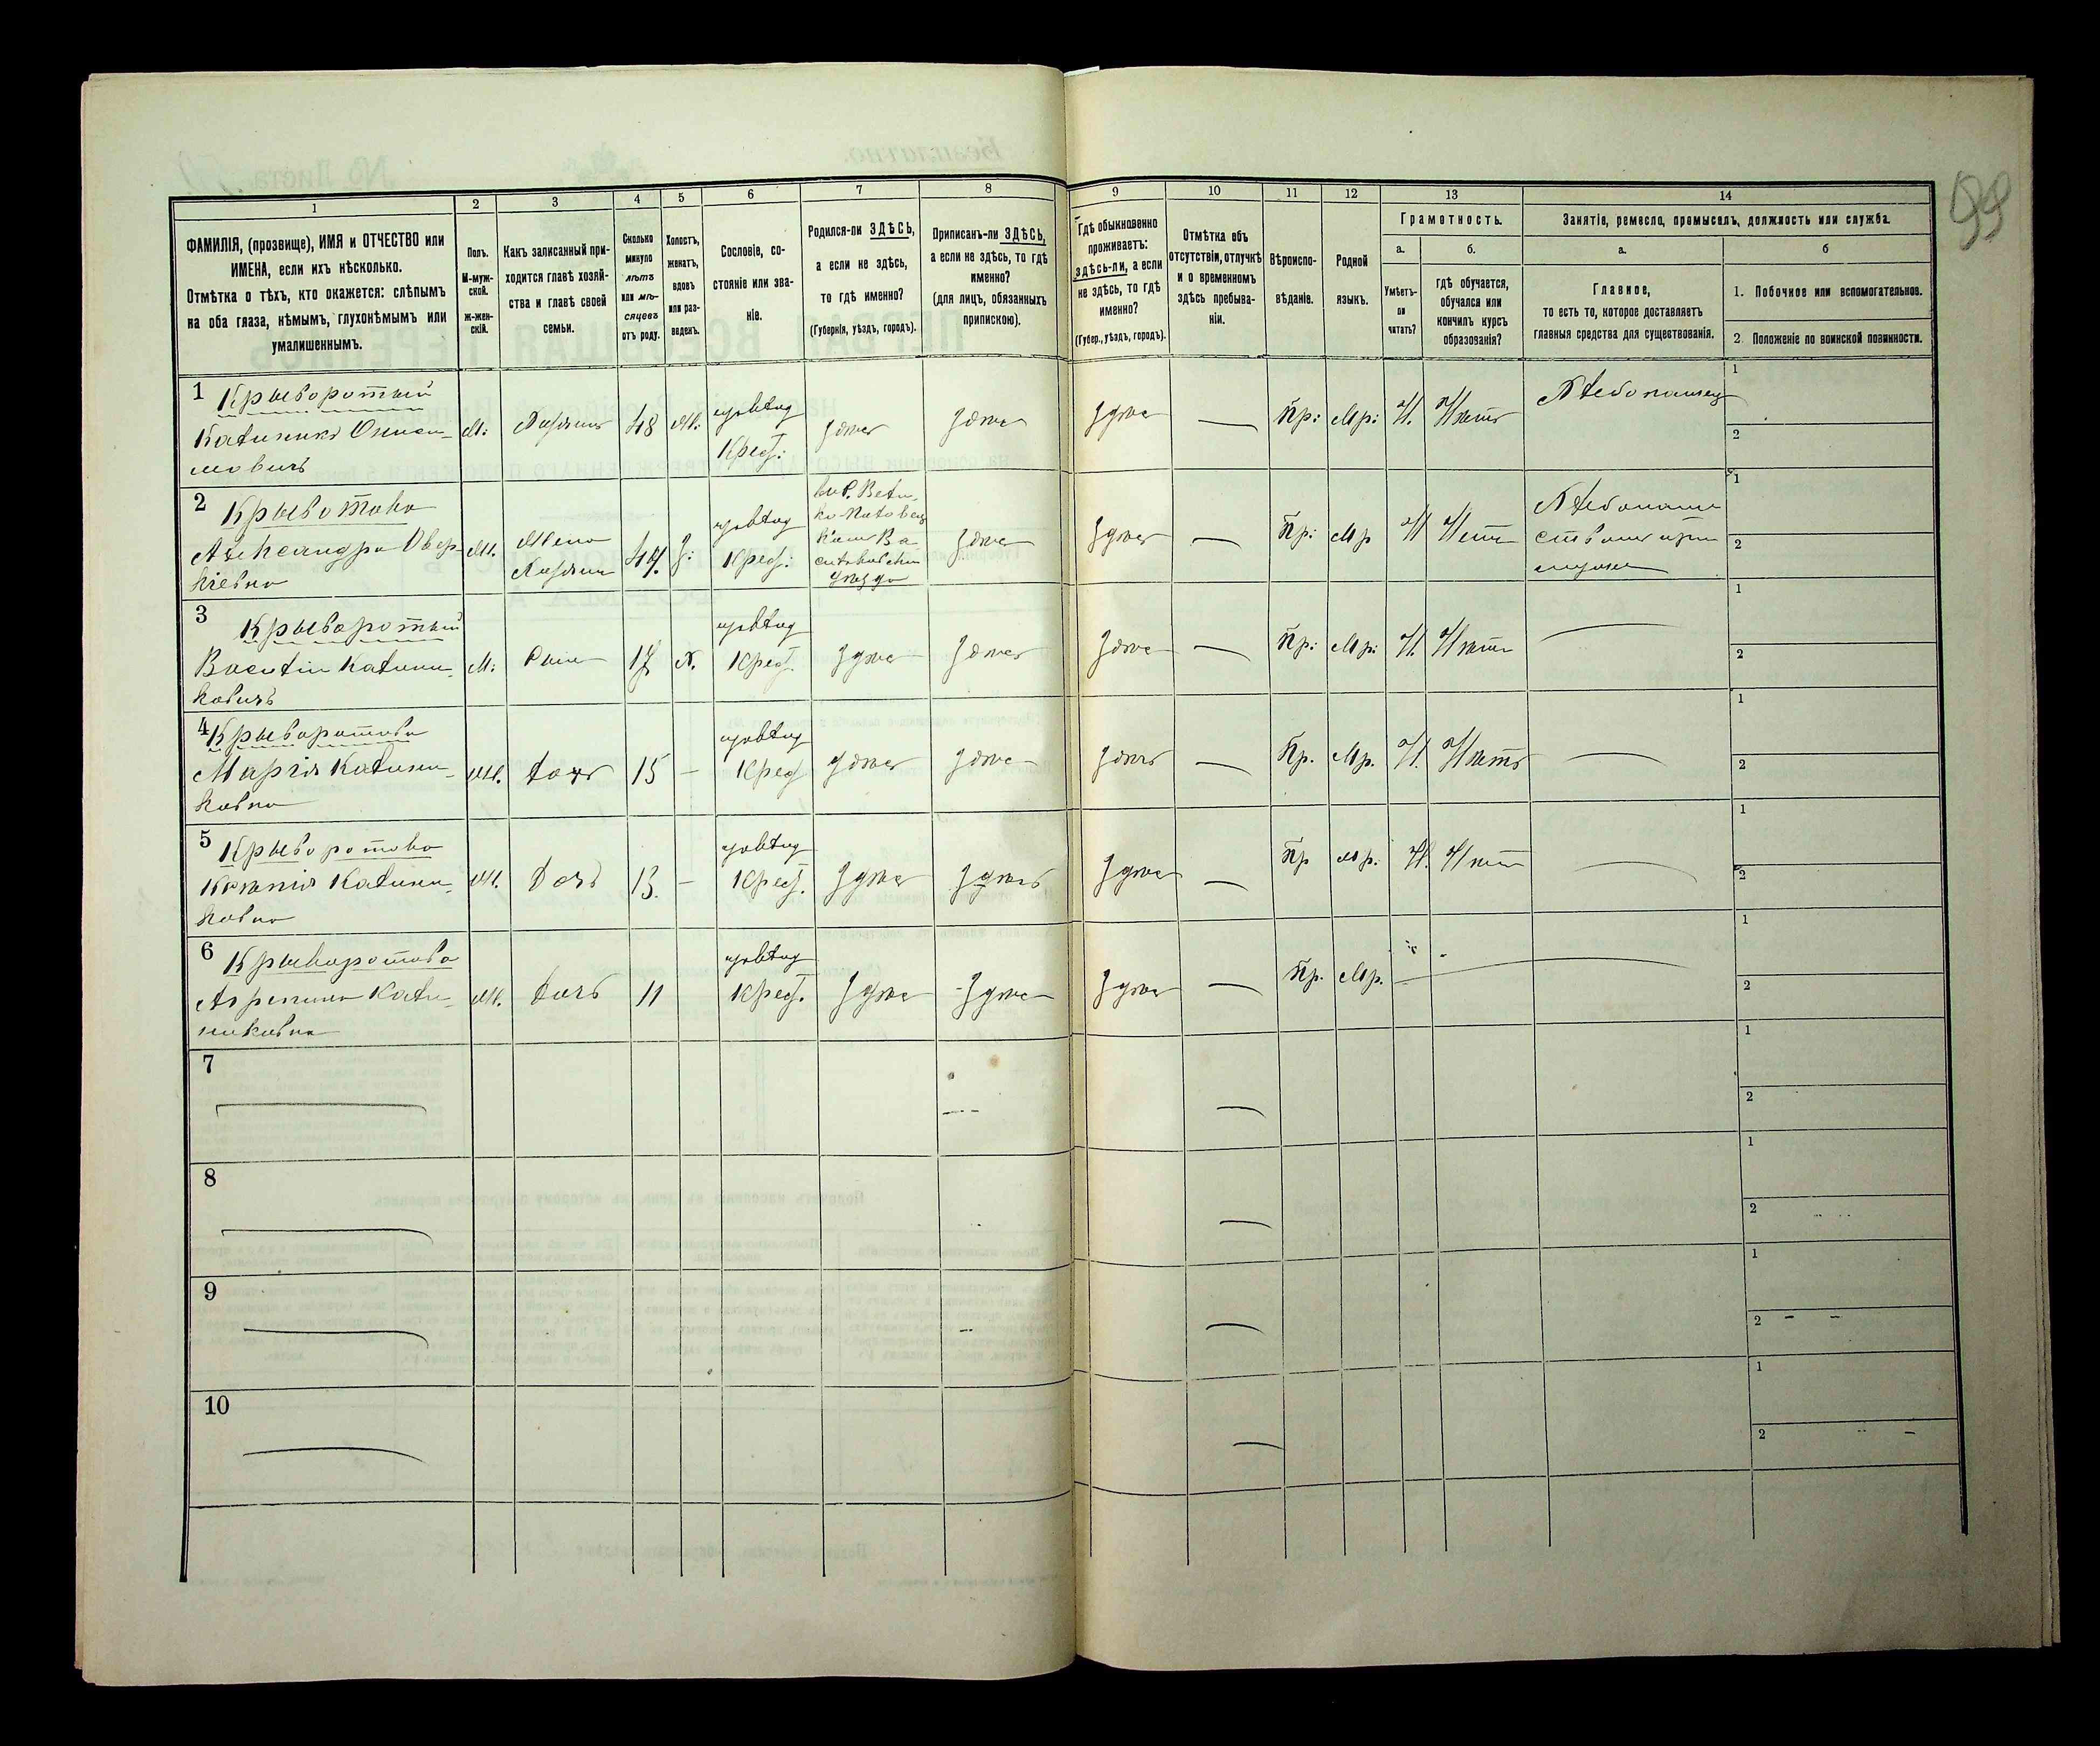 99
1
2
3
4
5
6
7
8
9
10
11
12
13
14
ФАМИЛІЯ, (прозвище), ИМЯ и ОТЧЕСТВО или
ИМЕНА, если ихъ нѣсколько.
Отмѣтка о тѣхъ, кто окажется: слѣпымъ
на оба глаза, нѣмымъ, глухонѣмымъ или
умалишеннымъ.
Полъ.
М-муж-
ской.
ж-жен-
скій.
Какъ записанный при-
ходится главѣ хозяй-
ства и главѣ своей
семьи.
Сколько
минуло
лѣтъ
или мѣ-
сяцевъ
отъ роду.
Холостъ,
женатъ,
вдовъ
или раз-
веденъ.
Сословіе, со-
стояніе или зва-
ніе.
Родился-ли ЗДѢСЬ,
а если не здѣсь,
то гдѣ именно?
(Губернія, уѣздъ, городъ).
Приписанъ-ли ЗДѢСЬ,
а если не здѣсь, то гдѣ
именно?
(для лицъ, обязанныхъ
припискою).
Гдѣ обыкновенно
проживаетъ:
здѣсь-ли, а если
не здѣсь, то гдѣ
именно?
(Губер., уѣздъ, городъ).
Отмѣтка объ
отсутствіи, отлучкѣ
и о временномъ
здѣсь пребыва-
ніи.
Вѣроиспо-
вѣданіе.
Родной
языкъ.
Грамотность.
а.
Умѣетъ-
ли
читать?
б.
гдѣ обучается,
обучался или
кончилъ курсъ
образованія?
Занятіе, ремесло, промыселъ, должность или служба.
а.
Главное,
то есть то, которое доставляетъ
главныя средства для существованія.
б
1. Побочное или вспомогательное.
2. Положеніе по воинской повинности.
1
Крывор отый
Калиникъ Ониси-
мовичъ
М.
Хозяинъ
48
Ж.
Крес.
Здѣсь
Здѣсь
Здѣсь
Пр:
Мр:
Н.
Нѣтъ
Хлебопашец
1
2
2
Александра
Ж.
Жена
Хозяина
Крес.
Здѣсь
Здѣсь
Пр:
Мр
Н
Нет
1
2
3
Крыворотый
Василій Калини-
ковичъ
М.
Сын
17
Х.
Крес.
Здѣсь
Здѣсь
Здѣсь
Пр:
Мр:
Н.
Нѣтъ
1
2
4
Крыворотова
Марія Калини-
ковна
Ж.
Дочь
15
Крес
Здѣсь
Здѣсь
Здѣсь
Пр.
Мр.
Н.
Нѣтъ
1
2
5
Крыворотова
Калини-
ковна
Ж.
Дочь
13.
Крес.
Здѣсь
Здѣсь
Здѣсь
Пр
Мр.
Н.
Нѣт
1
2
6
Крыворотова
Кали-
никовна
Ж.
Дочь
11
Крес.
Здѣсь
Здѣсь
Здѣсь
Пр.
Мр.
1
2
7
1
2
8
1
2
9
1
2
10
1
2